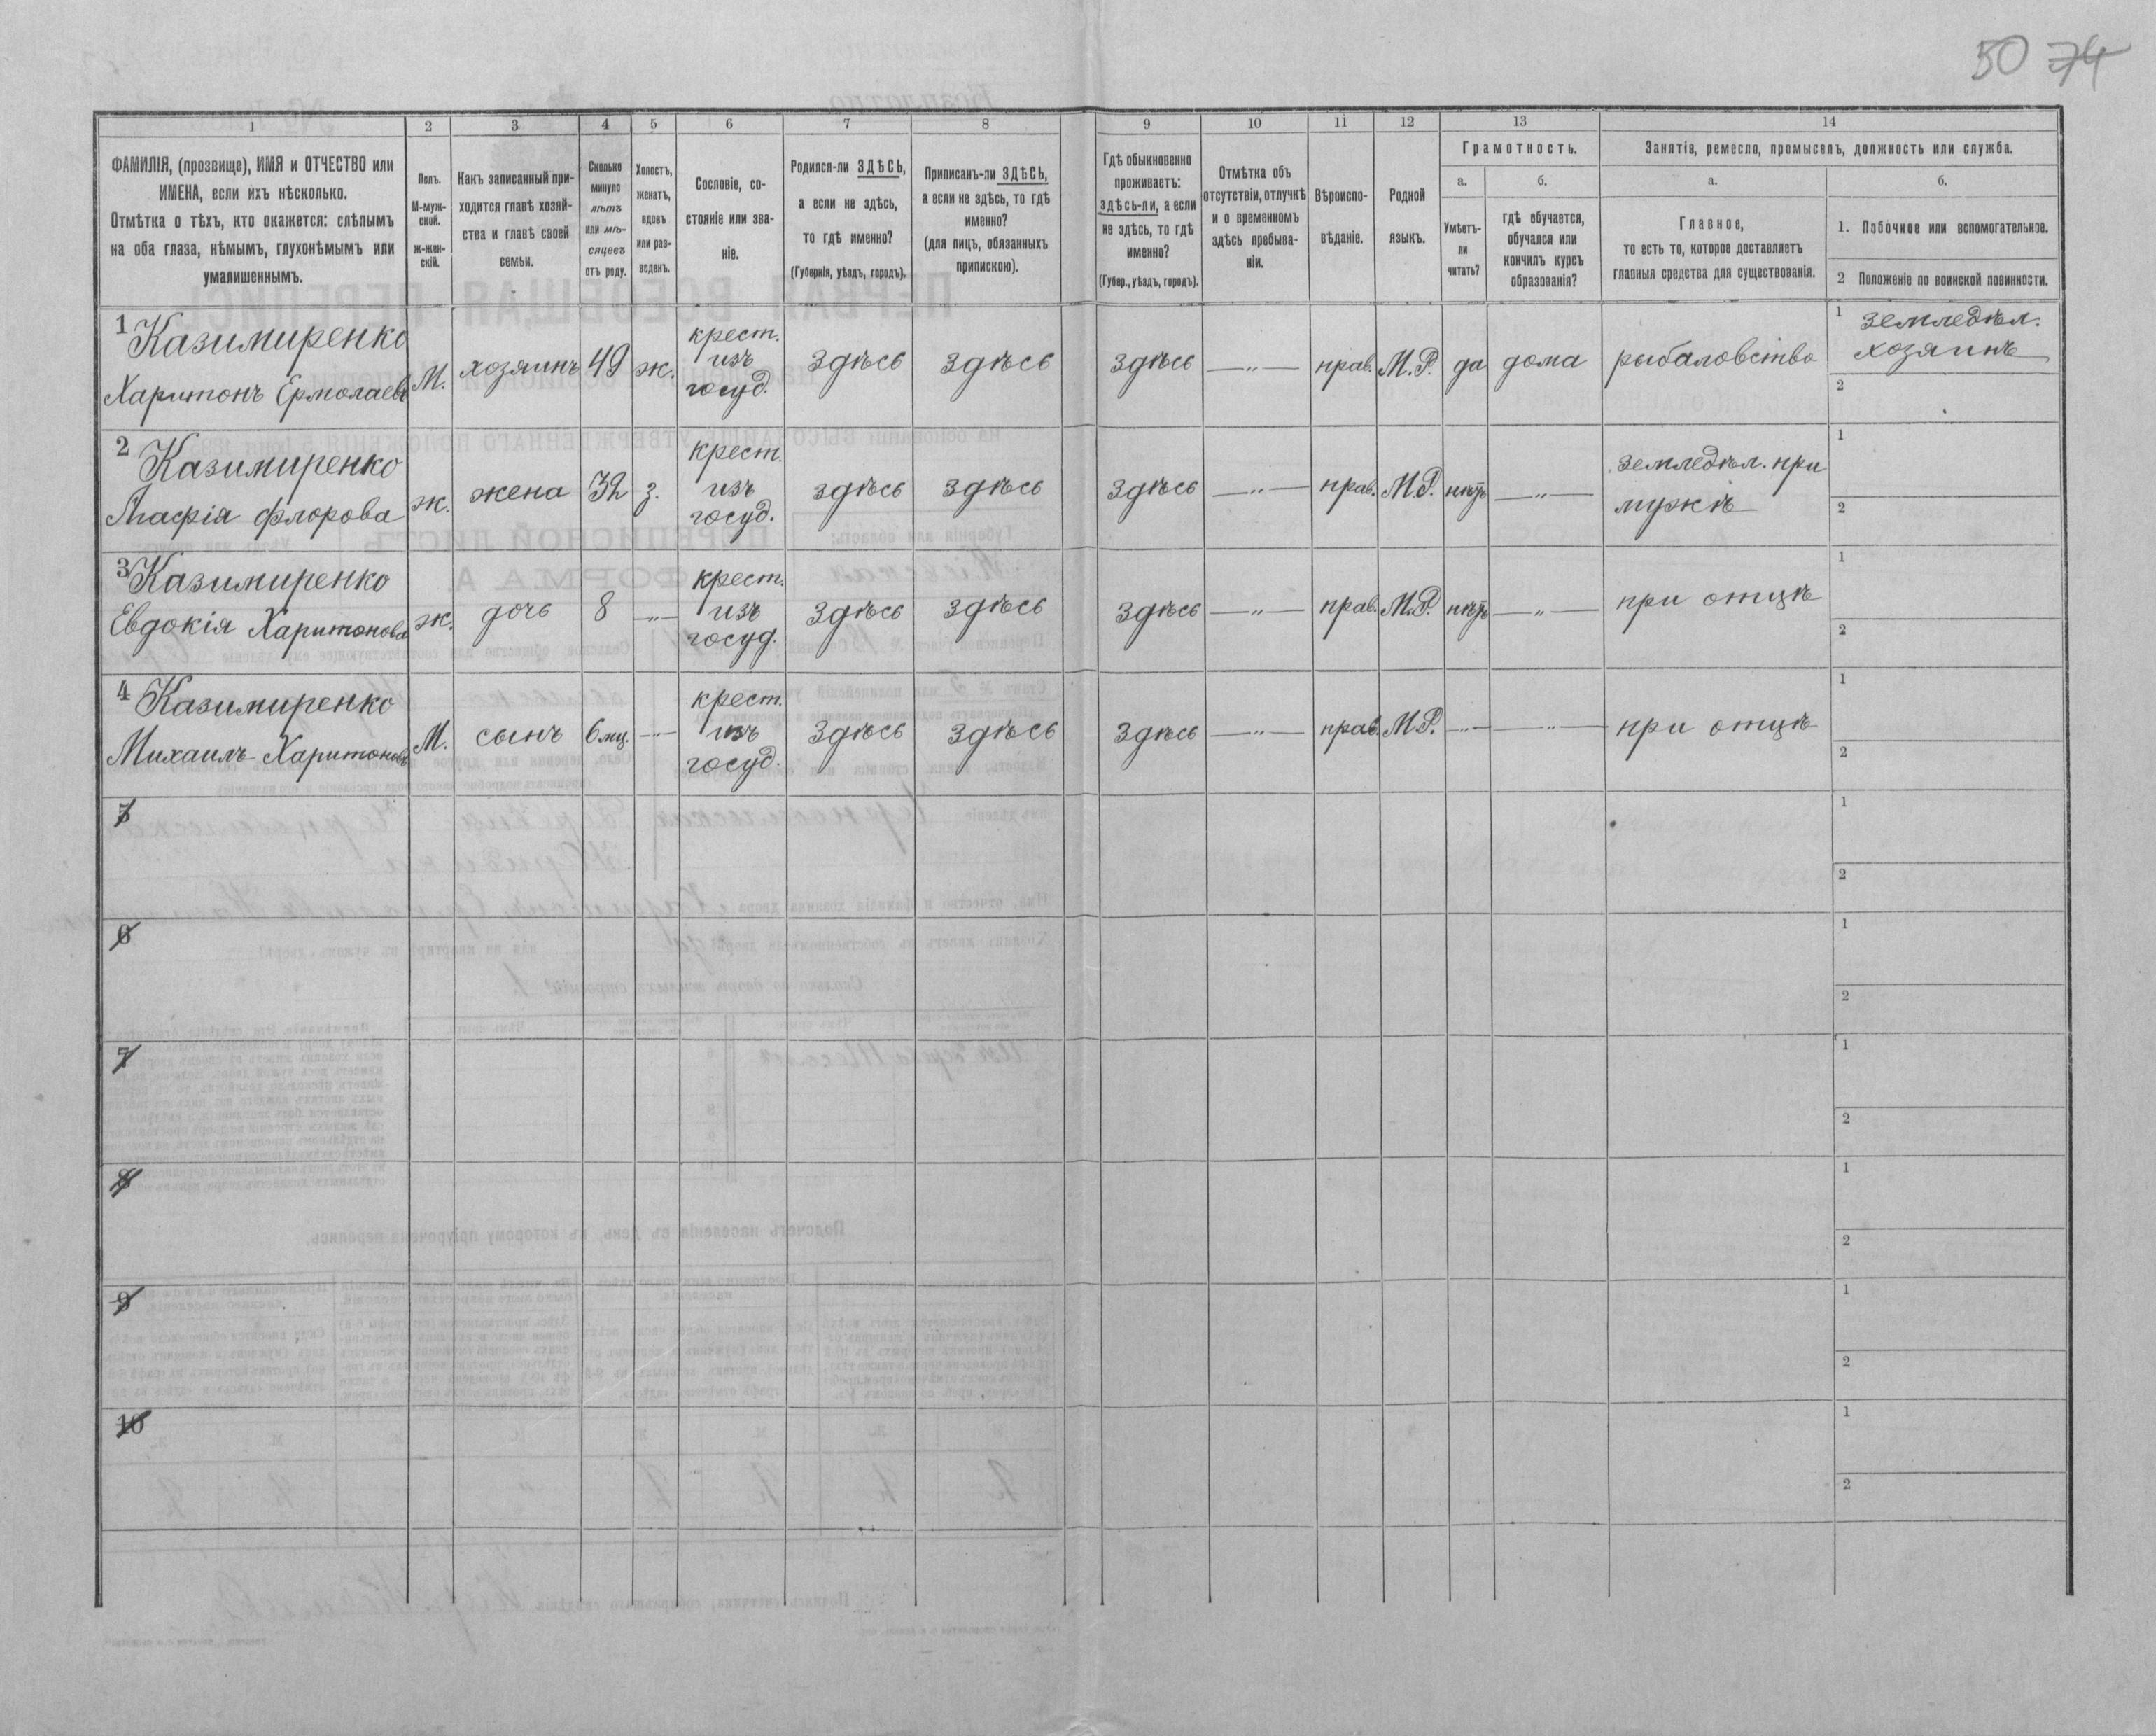 50 74
1 2 3 4 5 6 7 8 9 10 11 12 13 14
ФАМИЛІЯ, (прозвище), ИМЯ и ОТЧЕСТВО или
ИМЕНА, если ихъ нѣсколько.
Отмѣтка о тѣхъ, кто окажется: слѣпымъ
на оба глаза, нѣмымъ, глухонѣмымъ или
умалишеннымъ.
Полъ.
М-муж-
ской.
ж-жен-
скій.
Какъ записанный при-
ходится главѣ хозяй-
ства и главѣ своей
семьи.
Сколько
минуло
лѣтъ
или мѣ-
сяцевъ
отъ роду.
Холостъ,
женатъ,
вдовъ
или раз-
веденъ.
Сословіе, со-
стояніе или зва-
ніе.
Родился-ли ЗДѢСЬ,
а если не здѣсь,
то гдѣ именно?
(Губернія, уѣздъ, городъ).
Приписанъ-ли ЗДѢСЬ,
а если не здѣсь, то гдѣ
именно?
(для лицъ, обязанныхъ
припискою).
Гдѣ обыкновенно
проживаетъ:
здѣсь-ли, а если
не здѣсь, то гдѣ
именно?
(Губер., уѣздъ, городъ).
Отмѣтка объ
отсутствіи, отлучкѣ
и о временномъ
здѣсь пребыва-
ніи.
Вѣроиспо-
вѣданіе.
Родной
языкъ.
Грамотность.
а.
Умѣетъ-
ли
читать?
б.
гдѣ обучается,
обучался или
кончилъ курсъ
образованія?
Занятіе, ремесло, промыселъ, должность или служба.
а.
Главное,
то есть то, которое доставляетъ
главныя средства для существованія.
б.
1. Побочное или вспомогательное.
2 Положеніе по воинской повинности.
1 Казимиренко
Харитонъ Ермолаевъ
М.
хозяинъ
49
ж.
крест.
изъ
госуд.
здѣсь
здѣсь
здѣсь
—„—
прав.
М.Р.
да
дома
рыбаловство
1 земледѣл.
хозяинъ
2
2 Казимиренко
Агафія Флорова
ж.
жена
32
з.
крест.
изъ
госуд.
здѣсь
здѣсь
здѣсь
—„—
прав.
М.Р.
нѣтъ
—„—
земледѣл. при
мужѣ
1
2
3 Казимиренко
Евдокія Харитонова
ж.
дочь
8
—„—
крест.
изъ
госуд.
здѣсь
здѣсь
здѣсь
—„—
прав.
М.Р.
нѣтъ
—„—
при отцѣ
1
2
4 Казимиренко
Михаилъ Харитоновъ
М.
сынъ
6 мц.
—„—
крест.
изъ
госуд.
здѣсь
здѣсь
здѣсь
—„—
прав.
М.Р.
—„—
—„—
при отцѣ
1
2
5
1
2
6
1
2
7
1
2
8
1
2
9
1
2
10
1
2